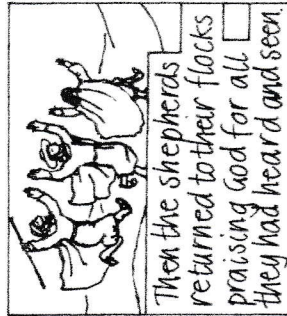 Then the shepherds
returned to their flocks
praising God for all
they had heard and seen.